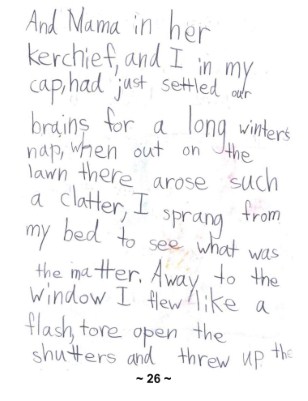 And Mama in her
kerchief, and I in my
cap, had just settled our
brains for a long winter's
nap, when out on the
lawn there arose such
a clatter, I sprang from
my bed to see what was
the matter. Away to the
window I flew like a
flash, tore open the
shutters and threw up the
~ 26 ~